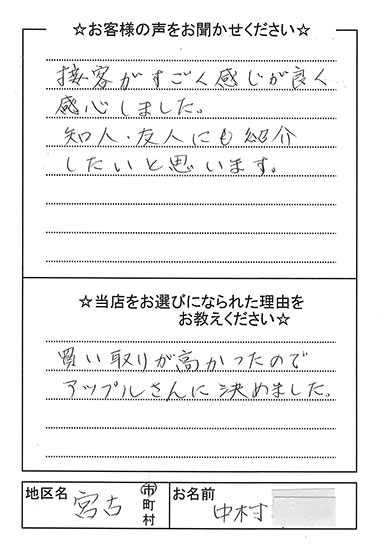 ☆お客様の声をお聞かせください☆
接客がすごく感じが良く
感心しました。
知人・友人にも紹介
したいと思います。
☆当店をお選びになられた理由を
お教えください☆
買い取りが高かったので
アップルさんに決めました。
地区名 宮古 市町村 お名前 中村